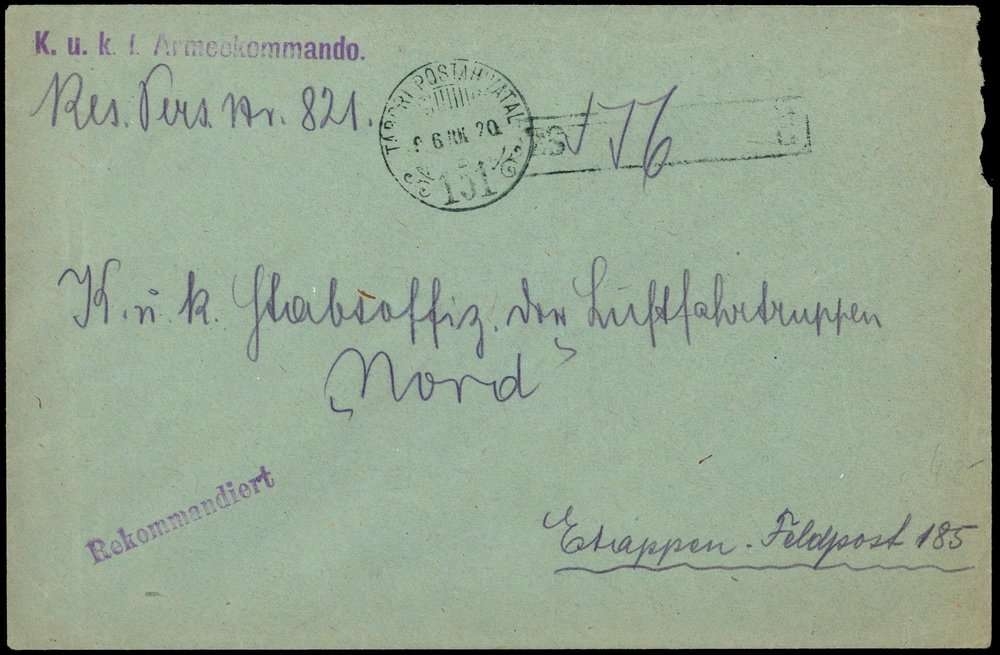 K. u. k. 1. Armeekommando.
Res. Pers. Nr. 821.
TABORI POSTAHIVATAL
6 20
151
176
K. u. k. Stabsoffiz. der Luftfahrtruppen
„Nord"
Rekommandiert
Etappen-Feldpost 185